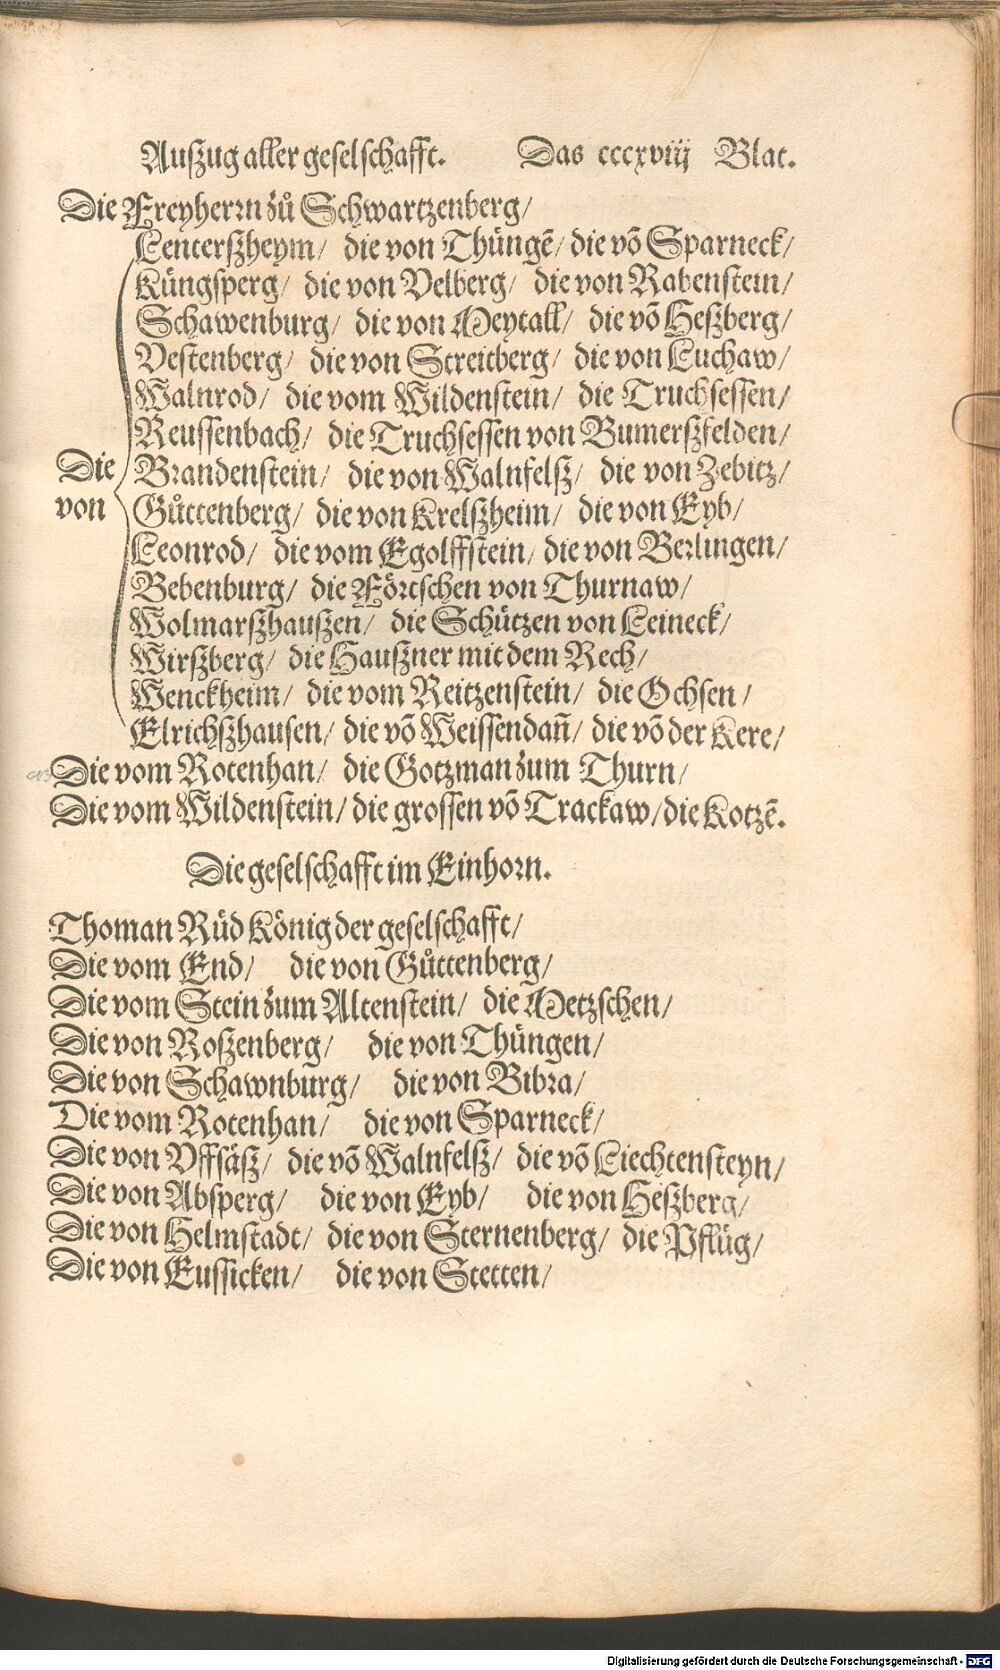 Auſzug aller geselschafft. Das cccxviij Blat.
Die Freyherrn zů Schwartzenberg/
Lenterſzheym/ die von Thüngẽ/ die võ Sparneck/
Küngsperg/ die von Velberg/ die von Rabenstein/
Schawenburg/ die von Meytall/ die võ Heſzberg/
Vestenberg/ die von Streitberg/ die von Luchaw/
Walnrod/ die vom Wildenstein/ die Truchsessen/
Reussenbach/ die Truchsessen von Bumerſzfelden/
Die von
Brandenstein/ die von Walnfelſz/ die von Zebitz/
Gůttenberg/ die von Krelſzheim/ die von Eyb/
Leonrod/ die vom Egolffstein/ die von Berlingen/
Bebenburg/ die Förtschen von Thurnaw/
Wolmarſzhauſzen/ die Schützen von Leineck/
Wirſzberg/ die Hauſzner mit dem Rech/
Wenckheim/ die vom Reitzenstein/ die Ochsen/
Elrichſzhausen/ die võ Weissendañ/ die võ der Kere/
Die vom Rotenhan/ die Gotzman zum Thurn/
Die vom Wildenstein/ die grossen võ Trackaw/ die Kotzẽ.
Die geselschafft im Einhorn.
Thoman Rüd König der geselschafft/
Die vom End/ die von Gůttenberg/
Die vom Stein zum Altenstein/ die Metzschen/
Die von Roſzenberg/ die von Thüngen/
Die von Schawnburg/ die von Bibra/
Die vom Rotenhan/ die von Sparneck/
Die von Vffsäſz/ die võ Walnfelſz/ die võ Liechtensteyn/
Die von Absperg/ die von Eyb/ die von Heſzberg/
Die von Helmstadt/ die von Sternenberg/ die Pflüg/
Die von Eussicken/ die von Stetten/
Digitalisierung gefördert durch die Deutsche Forschungsgemeinschaft - DFG